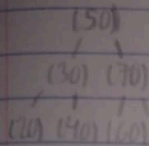 (50)
(30) (70)
(20) (40) (60)